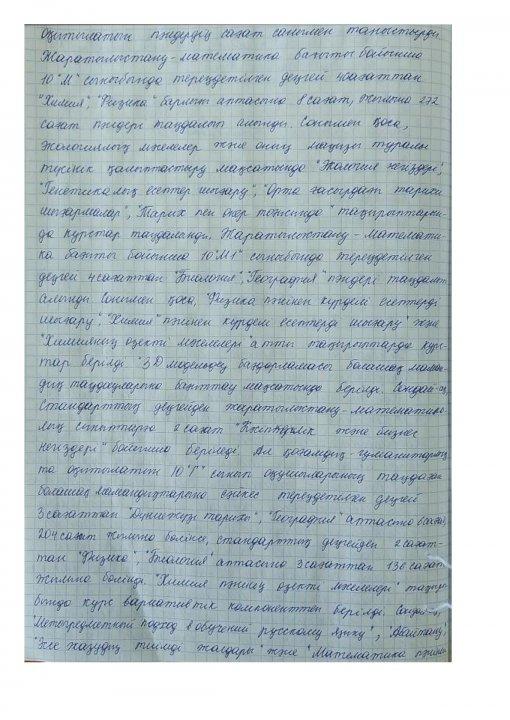 Оқытылатын пәндердің сағат санымен таныстырды.
Жаратылыстану-математика бағыты бойынша
10 "М" сыныбында тереңдетілген деңгей 4 сағаттан
"Химия", "Физика" барлығы аптасына 8 сағат, жылына 272
сағат пәндері таңдалып алынды. Сонымен қоса,
экологиялық мәселелер және оның маңызы туралы
түсінік қалыптастыру мақсатында "Экология негіздері",
"Генетикалық есептер шығару", "Орта ғасырдағы тарихи
шығармалар", "Тарих пен өнер тоғысында" тақырыптарын-
да курстар таңдалынды. Жаратылыстану-математи-
ка бағыты бойынша 10 "М1" сыныбында тереңдетілген
деңгей 4 сағаттан "Биология", "География" пәндері таңдалып
алынды. Сонымен қоса, "Физика пәнінен күрделі есептерді
шығару", "Химия" пәнінен күрделі есептерді шығару" және
"Химияның өзекті мәселелері" атты тақырыптарда курс-
тар берілді. "3D модельдеу бағдарламасы болашақ маман-
дық таңдауларына бағыттау мақсатында берілді. Сондай-ақ,
Стандарттық деңгейден жаратылыстану-математика-
лық сыныптарға 2 сағат "Кәсіпкерлік және бизнес
негіздері" бойынша беріледі. Ал қоғамдық-гуманитарлық
та оқытылатын 10 "Г" сынып оқушыларының таңдаған
болашақ мамандықтарына сәйкес тереңдетілген деңгей
3 сағаттан "Дүниежүзі тарихы", "География" аптасына 6 сағат,
204 сағат жылына болінсе, стандарттық деңгейден 2 сағат-
тан "Физика", "Биология" аптасына 3 сағаттан 136 сағат
жылына болінді. "Химия пәнінің өзекті мәселелері" тақыры-
бында курс вариативтік компоненттен берілді. Сондай-ақ,
"Метапредметный подход в обучении русскому языку", "Абайтану",
"Эссе жазудың тиімді жолдары" және "Математика пәнінен